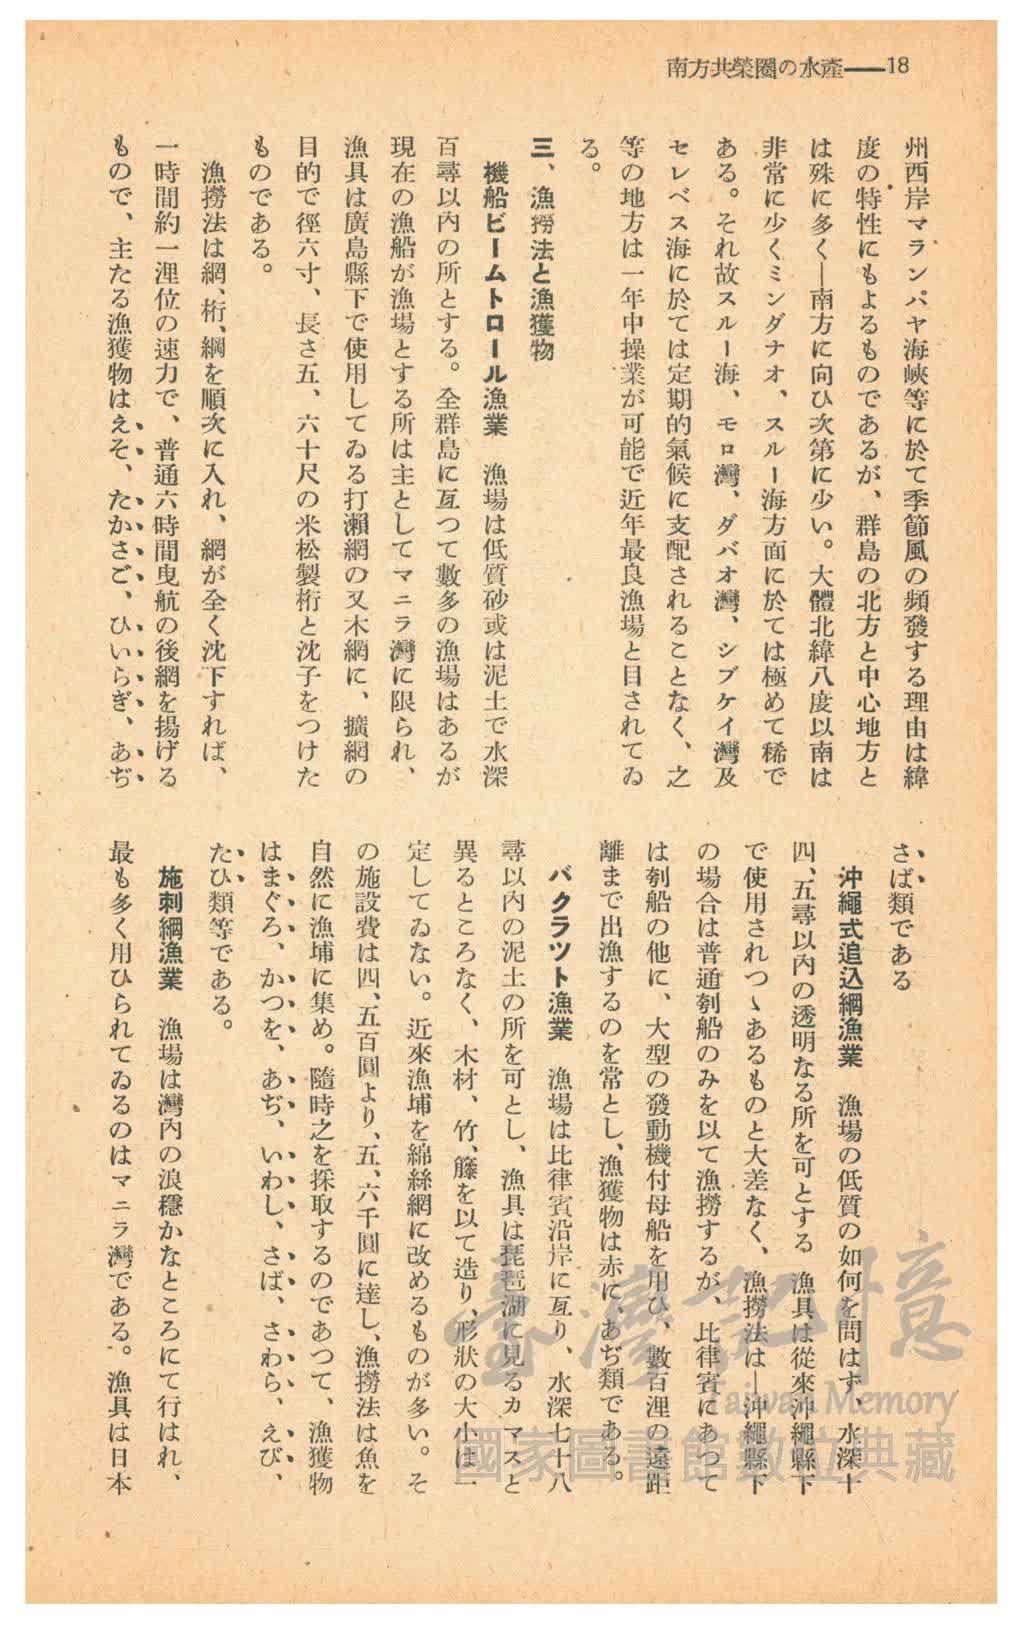 南方共榮圈の水產——18
州西岸マランパヤ海峽等に於て季節風の頻發する理由は緯
度の特性にもよるものであるが、群島の北方と中心地方と
は殊に多く—南方に向ひ次第に少い。大體北緯八度以南は
非常に少くミンダナオ、スルー海方面に於ては極めて稀で
ある。それ故スルー海、モロ灣、ダバオ灣、シブケイ灣及
セレベス海に於ては定期的氣候に支配されることなく、之
等の地方は一年中操業が可能で近年最良漁場と目されてゐ
る。
三、漁撈法と漁獲物
機船ビームトロール漁業　漁場は低質砂或は泥土で水深
百尋以內の所とする。全群島に亙つて數多の漁場はあるが
現在の漁船が漁場とする所は主としてマニラ灣に限られ、
漁具は廣島縣下で使用してゐる打瀨網の又木網に、擴網の
目的で徑六寸、長さ五、六十尺の米松製桁と沈子をつけた
ものである。
漁撈法は網、桁、綱を順次に入れ、網が全く沈下すれば、
一時間約一浬位の速力で、普通六時間曳航の後網を揚げる
もので、主たる漁獲物はえそ、たかさご、ひいらぎ、あぢ
さば類である
沖繩式追込網漁業　漁場の低質の如何を問はず、水深十
四、五尋以內の透明なる所を可とする　漁具は從來沖繩縣下
で使用されつゝあるものと大差なく、漁撈法は—沖繩縣下
の場合は普通刳船のみを以て漁撈するが、比律賓にあつて
は刳船の他に、大型の發動機付母船を用ひ、數百浬の遠距
離まで出漁するのを常とし、漁獲物は赤に、あぢ類である。
バクラツト漁業　漁場は比律賓沿岸に亙り、水深七十八
尋以內の泥土の所を可とし、漁具は琵琶湖に見るカマスと
異るところなく、木材、竹、籐を以て造り、形狀の大小は一
定してゐない。近來漁埔を綿絲網に改めるものが多い。そ
の施設費は四、五百圓より、五、六千圓に達し、漁撈法は魚を
自然に漁埔に集め。隨時之を採取するのであつて、漁獲物
はまぐろ、かつを、あぢ、いわし、さば、さわら、えび、
たひ類等である。
施刺網漁業　漁場は灣內の浪穩かなところにて行はれ、
最も多く用ひられてゐるのはマニラ灣である。漁具は日本
臺灣記憶
Taiwan Memory
國家圖書館數位典藏